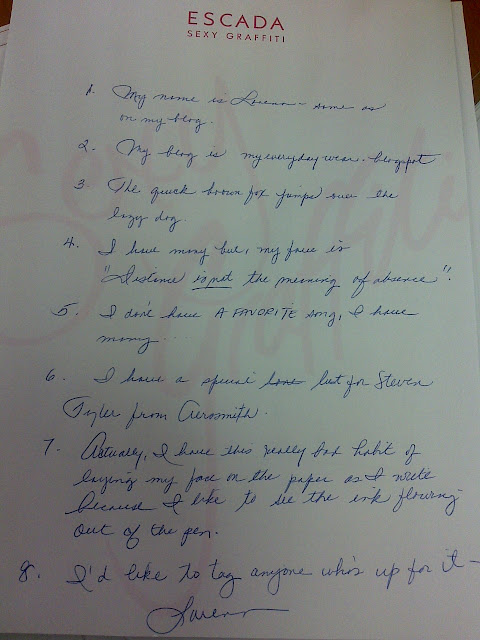 ESCADA
SEXY GRAFFITI
1. My name is Lorena - same as
on my blog.
2. My blog is myeverydaywear.blogspot
3. The quick brown fox jumps over the
lazy dog.
4. I have many but, my fave is
"Distance is not the meaning of absence".
5. I don't have A FAVORITE song, I have
many
6. I have a special lust for Steven
Tyler from Aerosmith.
7. Actually, I have this really bad habit of
laying my face on the paper as I write
because I like to see the ink flowing
out of the pen.
8. I'd like to tag anyone who's up for it -
Lorena